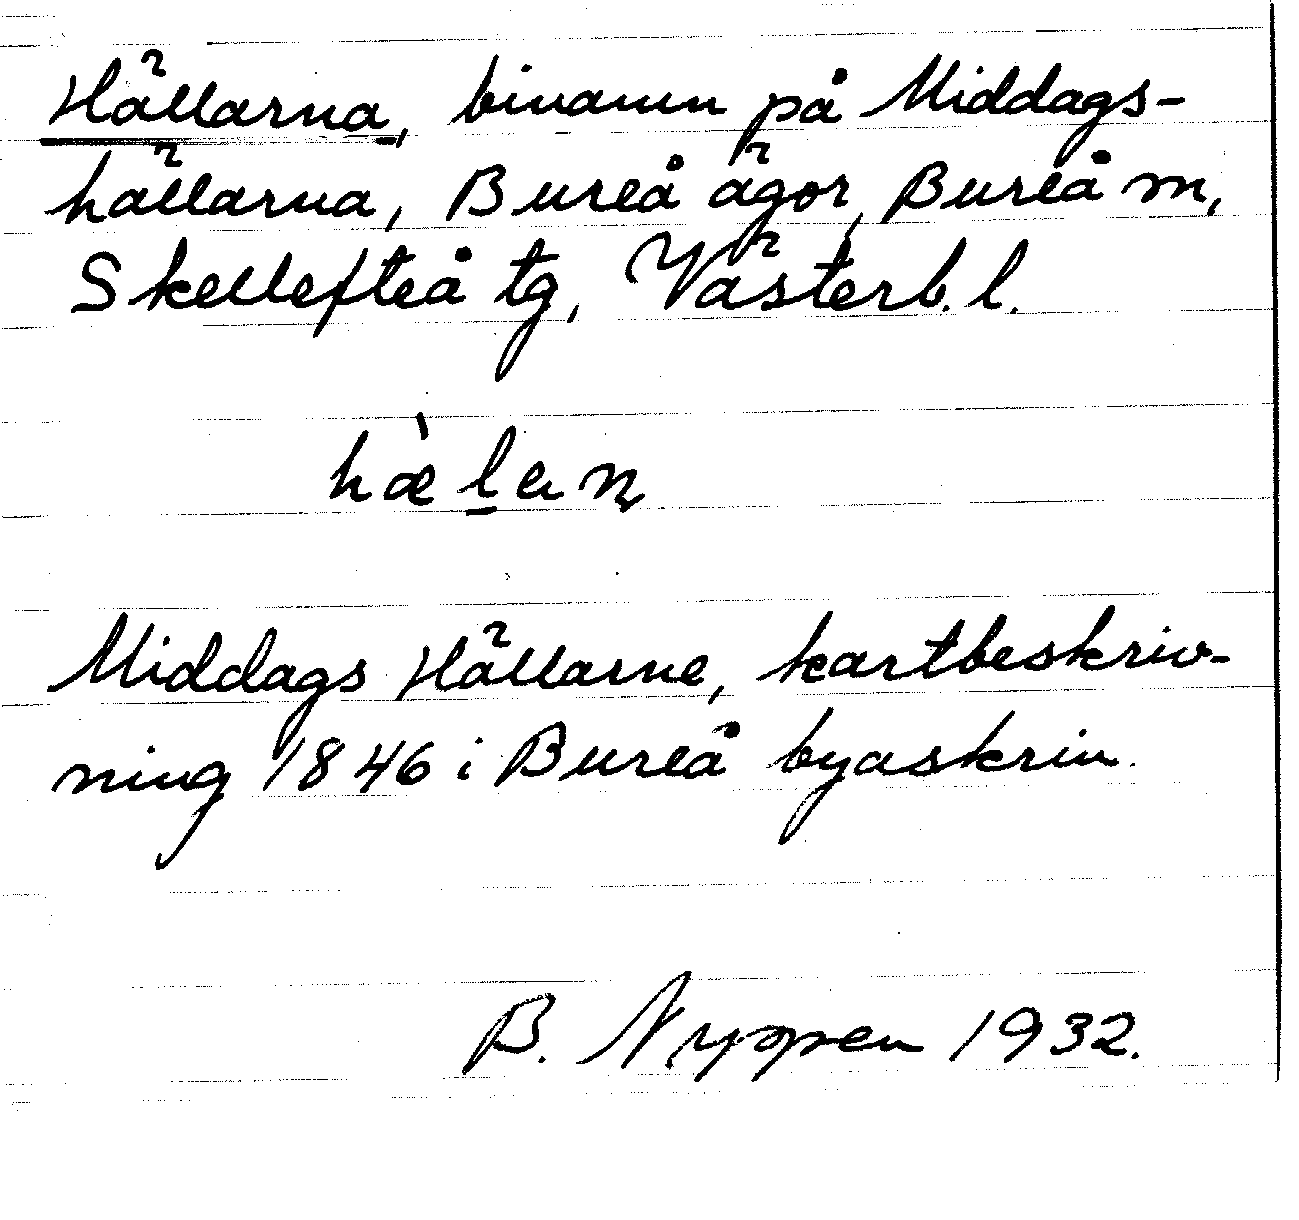 Hällarna, binamn på Middags-
hällarna, Bureå ägor, Bureå m,
Skellefteå tg, Västerb. l.
hæ̀l̲an̥
Middags Hällarne, kartbeskriv-
ning 1846 i Bureå byaskrin.
B. Nyppen 1932.